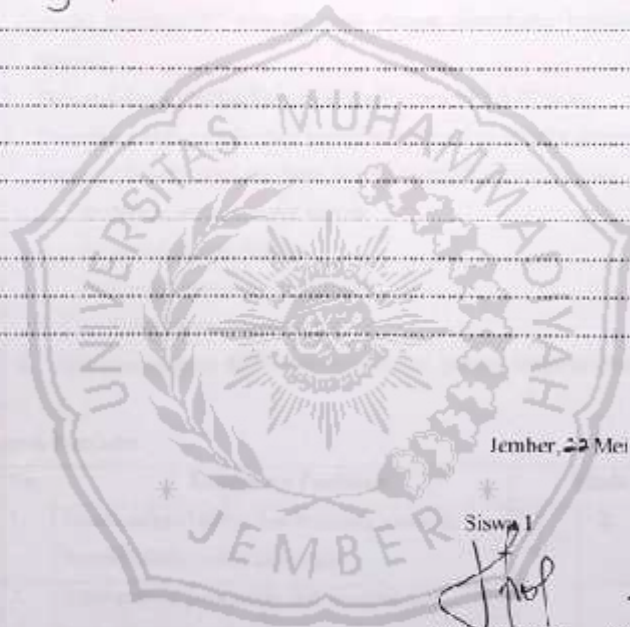 UNIVERSITAS MUHAMMADIYAH
JEMBER
Jember, 22 Mei
Siswa 1